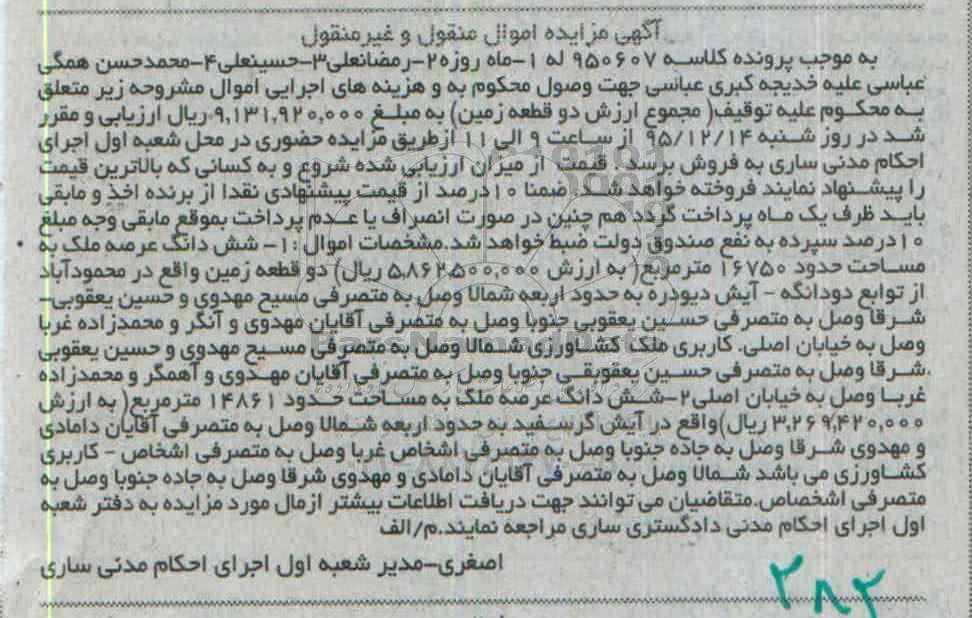 آگهی مزایده اموال منقول و غیرمنقول
به موجب پرونده کلاسه ۹۵۰۶۰۷ له ۱-ماه روزه۲-رمضانعلی۳-حسینعلی۴-محمدحسن همگی
عباسی علیه خدیجه کبری عباسی جهت وصول محکوم به و هزینه های اجرایی اموال مشروحه زیر متعلق
به محکوم علیه توقیف( مجموع ارزش دو قطعه زمین) به مبلغ ۹,۱۳۱,۹۲۰,۰۰۰ریال ارزیابی و مقرر
شد در روز شنبه ۹۵/۱۲/۱۴ از ساعت ۹ الی ۱۱ ازطریق مزایده حضوری در محل شعبه اول اجرای
احکام مدنی ساری به فروش برسد. قیمت از میزان ارزیابی شده شروع و به کسانی که بالاترین قیمت
را پیشنهاد نمایند فروخته خواهد شد. ضمنا ۱۰درصد از قیمت پیشنهادی نقدا از برنده اخذ و مابقی
باید ظرف یک ماه پرداخت گردد هم چنین در صورت انصراف یا عدم پرداخت بموقع مابقی وجه مبلغ
۱۰درصد سپرده به نفع صندوق دولت ضبط خواهد شد.مشخصات اموال :۱- شش دانگ عرصه ملک به
مساحت حدود ۱۶۷۵۰ مترمربع( به ارزش ۵,۸۶۲,۵۰۰,۰۰۰ ریال) دو قطعه زمین واقع در محمودآباد
از توابع دودانگه - آیش دیودره به حدود اربعه شمالا وصل به متصرفی مسیح مهدوی و حسین یعقوبی-
شرقا وصل به متصرفی حسین یعقوبی جنوبا وصل به متصرفی آقایان مهدوی و آنگر و محمدزاده غربا
وصل به خیابان اصلی. کاربری ملک کشاورزی شمالا وصل به متصرفی مسیح مهدوی و حسین یعقوبی
.شرقا وصل به متصرفی حسین یعقوبقی جنوبا وصل به متصرفی آقایان مهدوی و آهمگر و محمدزاده
غربا وصل به خیابان اصلی۲-شش دانگ عرصه ملک به مساحت حدود ۱۴۸۶۱ مترمربع( به ارزش
۳,۲۶۹,۴۲۰,۰۰۰ ریال)واقع در آیش گرسفید به حدود اربعه شمالا وصل به متصرفی آقایان دامادی
و مهدوی شرقا وصل به جاده جنوبا وصل به متصرفی اشخاص غربا وصل به متصرفی اشخاص - کاربری
کشاورزی می باشد شمالا وصل به متصرفی آقایان دامادی و مهدوی شرقا وصل به جاده جنوبا وصل به
متصرفی اشخصاص.متقاضیان می توانند جهت دریافت اطلاعات بیشتر ازمال مورد مزایده به دفتر شعبه
اول اجرای احکام مدنی دادگستری ساری مراجعه نمایند.م/الف
اصغری-مدیر شعبه اول اجرای احکام مدنی ساری
۲۸۲